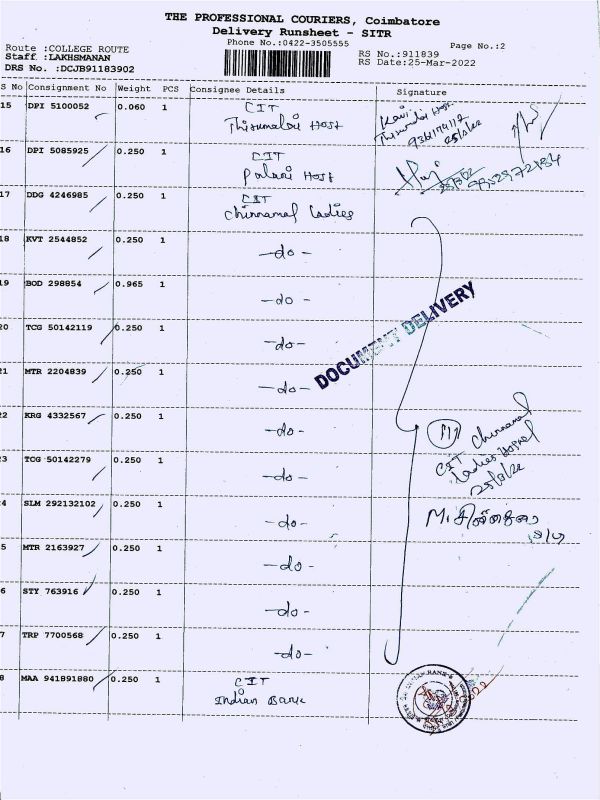 THE PROFESSIONAL COURIERS, Coimbatore
Delivery Runsheet - SITR
Phone No.:0422-3505555
Page No.:2
Route :COLLEGE ROUTE
RS No.:911839
Staff :LAKHSMANAN
RS Date:25-Mar-2022
DRS No. :DCJB91183902
S No Consignment No Weight PCS Consignee Details Signature
15 DPI 5100052 0.060 1 CIT
Thirumalai Host
25/3/22
16 DPI 5085925 0.250 1 CIT
Palani Host
9952972184
17 DDG 4246985 0.250 1 CIT
Chinnamal Ladies
18 KVT 2544852 0.250 1 -do-
19 BOD 298854 0.965 1 -do-
DOCUMENT DELIVERY
20 TCG 50142119 0.250 1 -do-
21 MTR 2204839 0.250 1 -do-
22 KRG 4332567 0.250 1 -do-
CIT Chinnamal
Ladies Hostel
25/3/22
23 TCG 50142279 0.250 1 -do-
24 SLM 292132102 0.250 1 -do-
5 MTR 2163927 0.250 1 -do-
6 STY 763916 0.250 1 -do-
7 TRP 7700568 0.250 1 -do-
8 MAA 941891880 0.250 1 CIT
Indian Bank